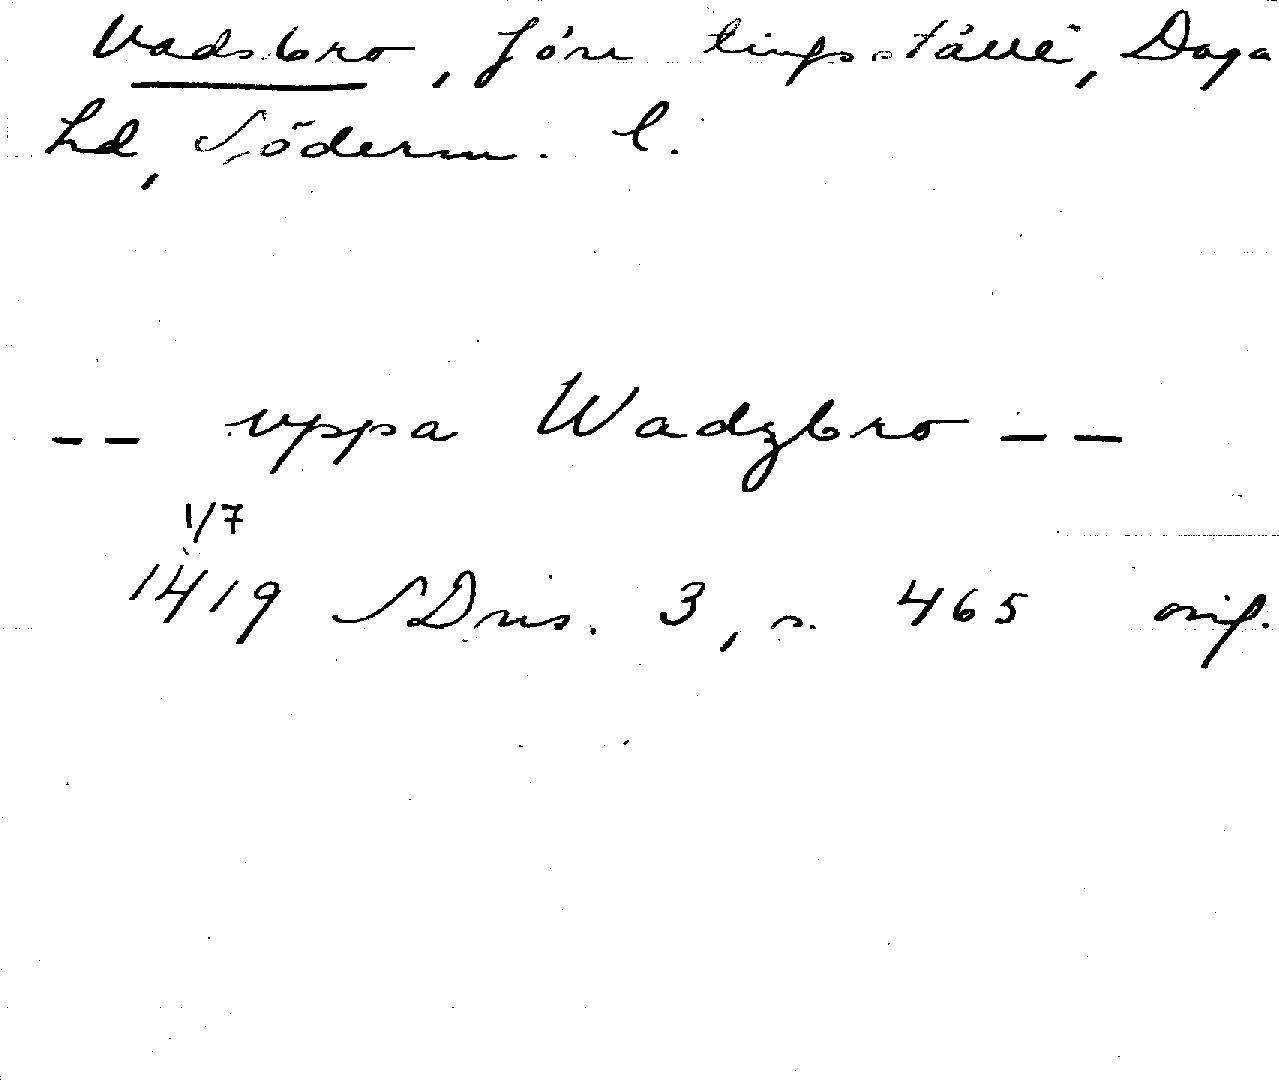 Vadsbro, förr tingsställe, Daga
hd, Söderm. l.
-- uppa Wadzbro --
1/7
1419 SDns. 3, s. 465 orig.